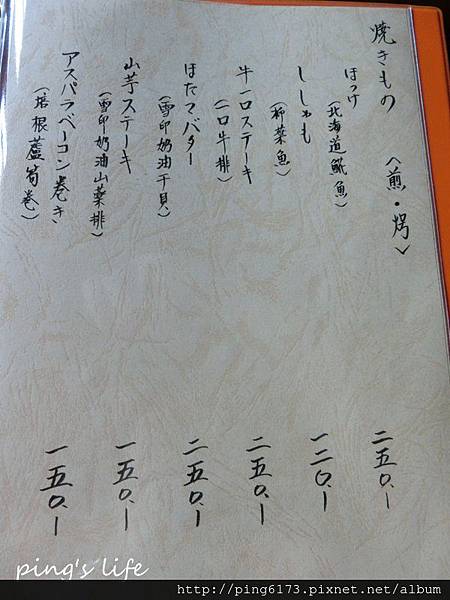 焼きもの 〈煎・烤〉
ほっけ
(北海道鯱魚)
二五0.-
ししゃも
(柳葉魚)
一二0.-
牛一口ステーキ
(一口牛排)
二五0.-
ほたてバター
(雪印奶油干貝)
二五0.-
山芋ステーキ
(雪印奶油山藥排)
一五0.-
アスパラベーコン巻き
(培根蘆筍巻)
一五0.-
ping's life
http://ping6173.pixnet.net/album